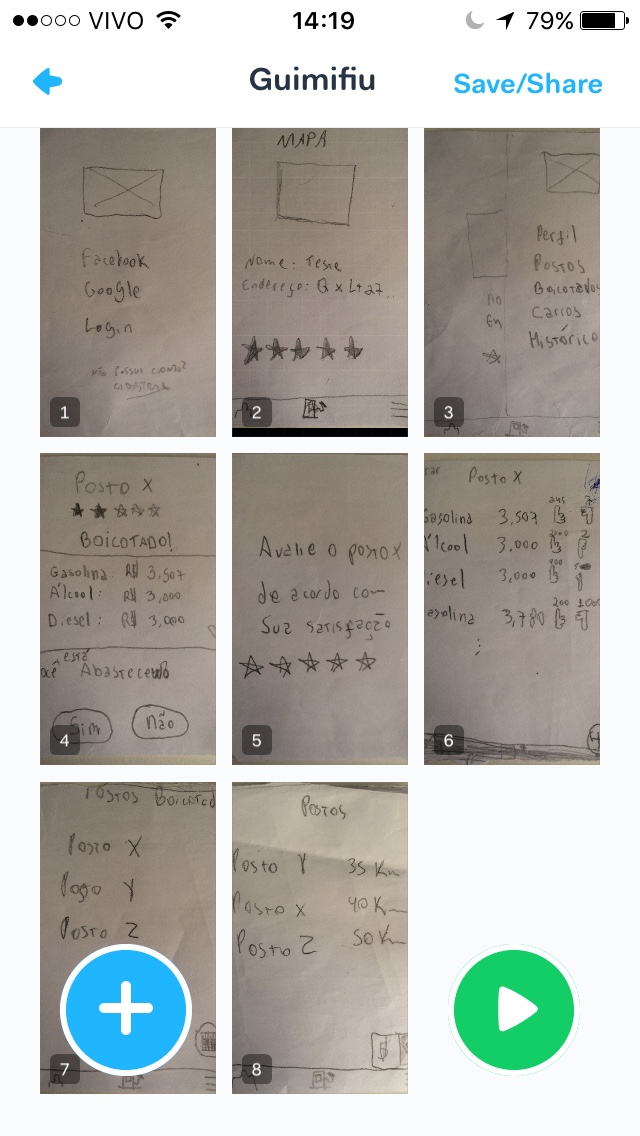 VIVO 14:19 79%
Guimifiu Save/Share
Facebook
Google
Login
não possui conta?
cadastrar
1
MAPA
Nome: Teste
Endereço: Q x Lt 27..
2
Perfil
Postos
Boicotados
Carros
Histórico
no
En
3
Posto X
BOICOTADO!
Gasolina: R$ 3,507
Álcool: R$ 3,000
Diesel: R$ 3,000
está
cê Abastecendo
Sim Não
4
Avalie o posto X
de acordo com
Sua satisfação
5
rar Posto X
Gasolina 3,507
Álcool 3.000
iesel 3,000
200 100
asolina 3,780
6
Postos Boicotad
Posto X
Pogo Y
Posto Z
7
Postos
Posto Y 35 Km
Posto X 40 Km
Posto Z 50 Km
8